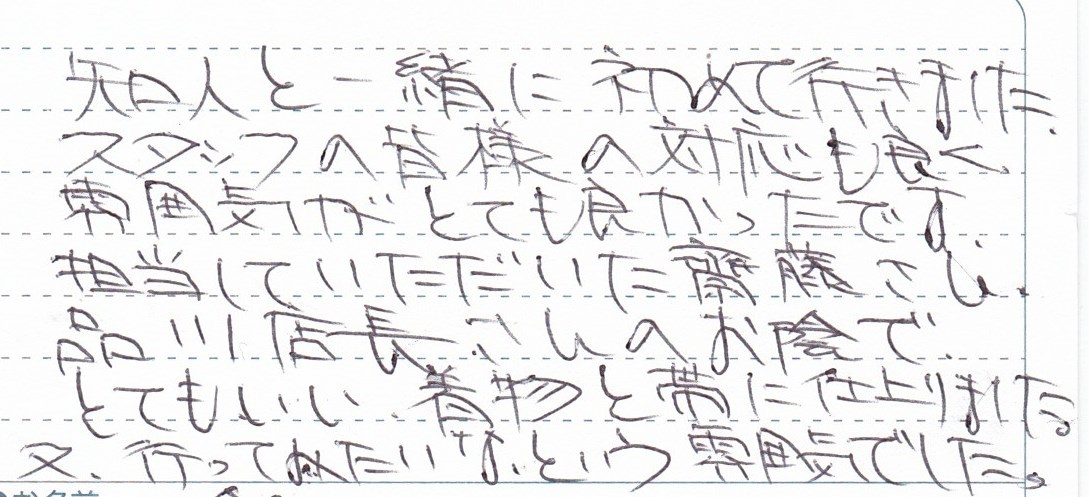 知人と一緒に初めて行きました。
スタッフの皆様の対応も良く、
雰囲気がとても良かったです。
担当していただいた齋藤さん、
品川店長さんのお陰で、
とてもいい着物と帯に仕上りました。
又、行ってみたいな、という雰囲気でした。